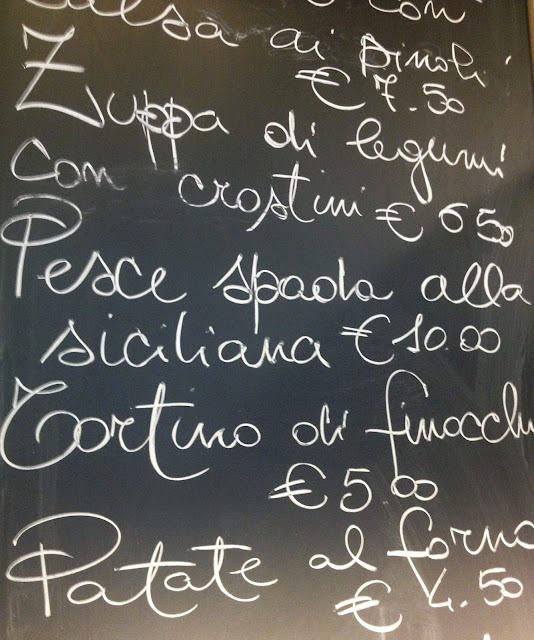 salsa ai pinoli
€ 7.50
Zuppa di legumi
con crostini € 6 50
Pesce spada alla
siciliana € 10.00
Tortino di finocchi
€ 5 00
Patate al forno
€ 4.50